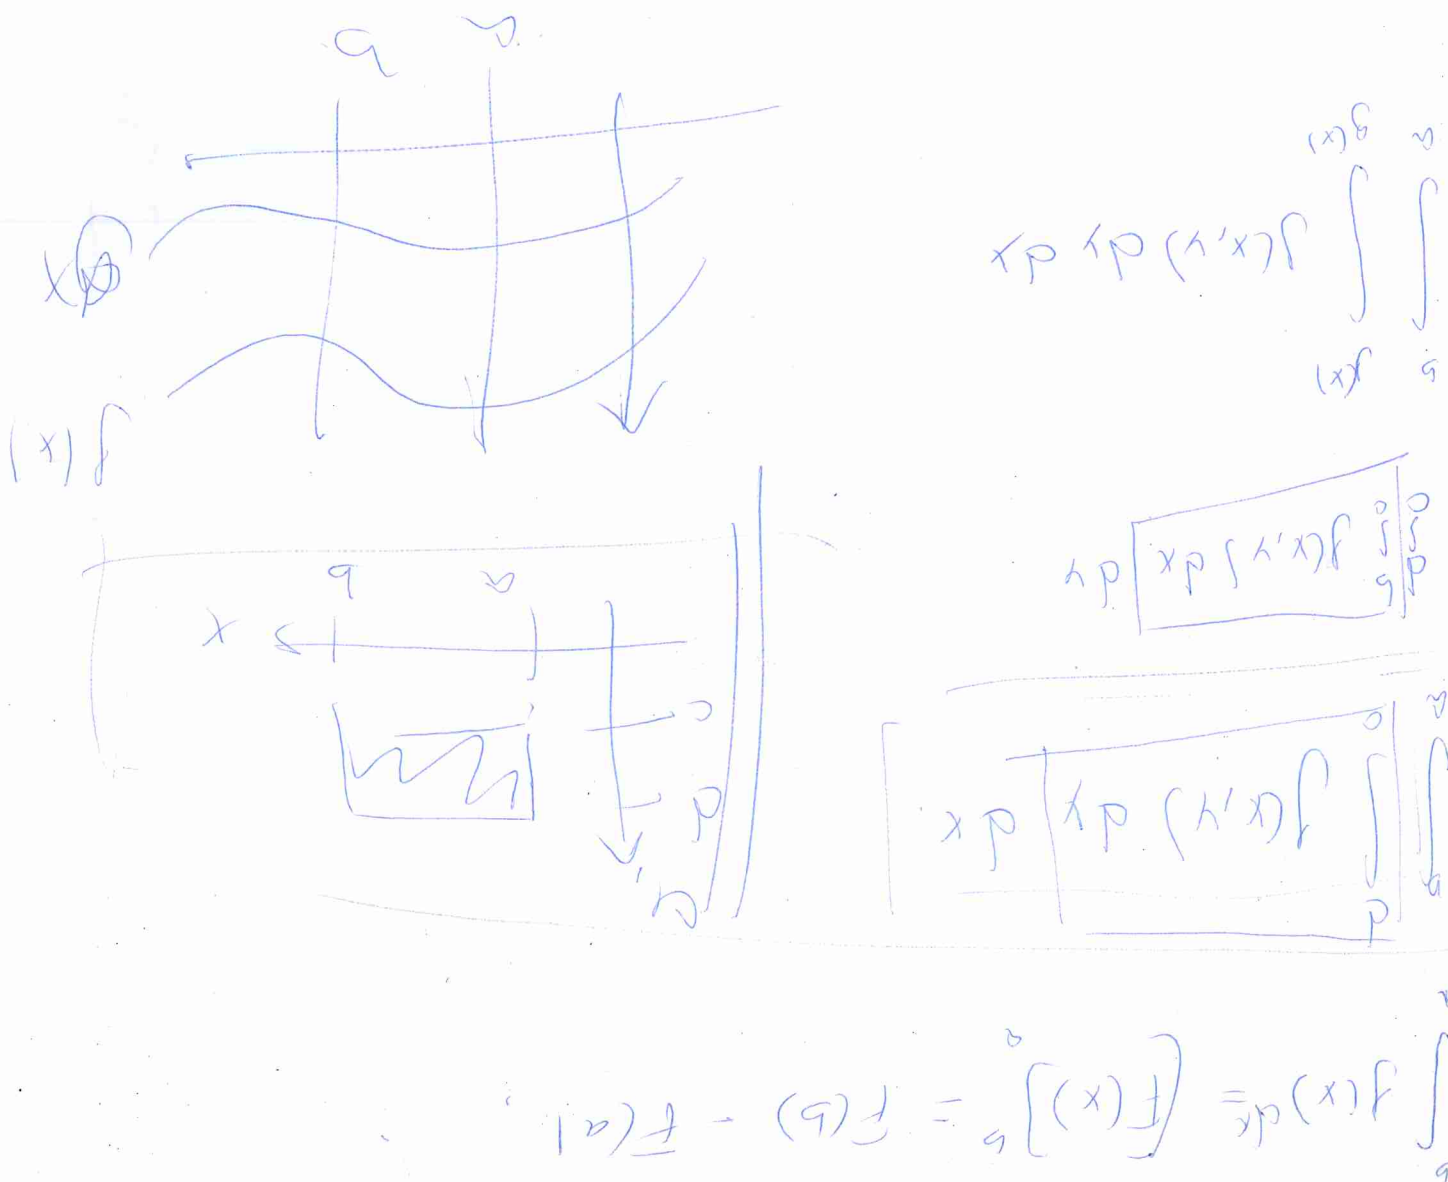 ∫_a^b f(x) dx = [F(x)]_a^b = F(b) - F(a)
∫_a^b [∫_c^d f(x,y) dy] dx
∫_c^d [∫_a^b f(x,y) dx] dy
∫_a^b ∫_{g(x)}^{f(x)} f(x,y) dy dx
d
c
a b x
f(x)
x
a b